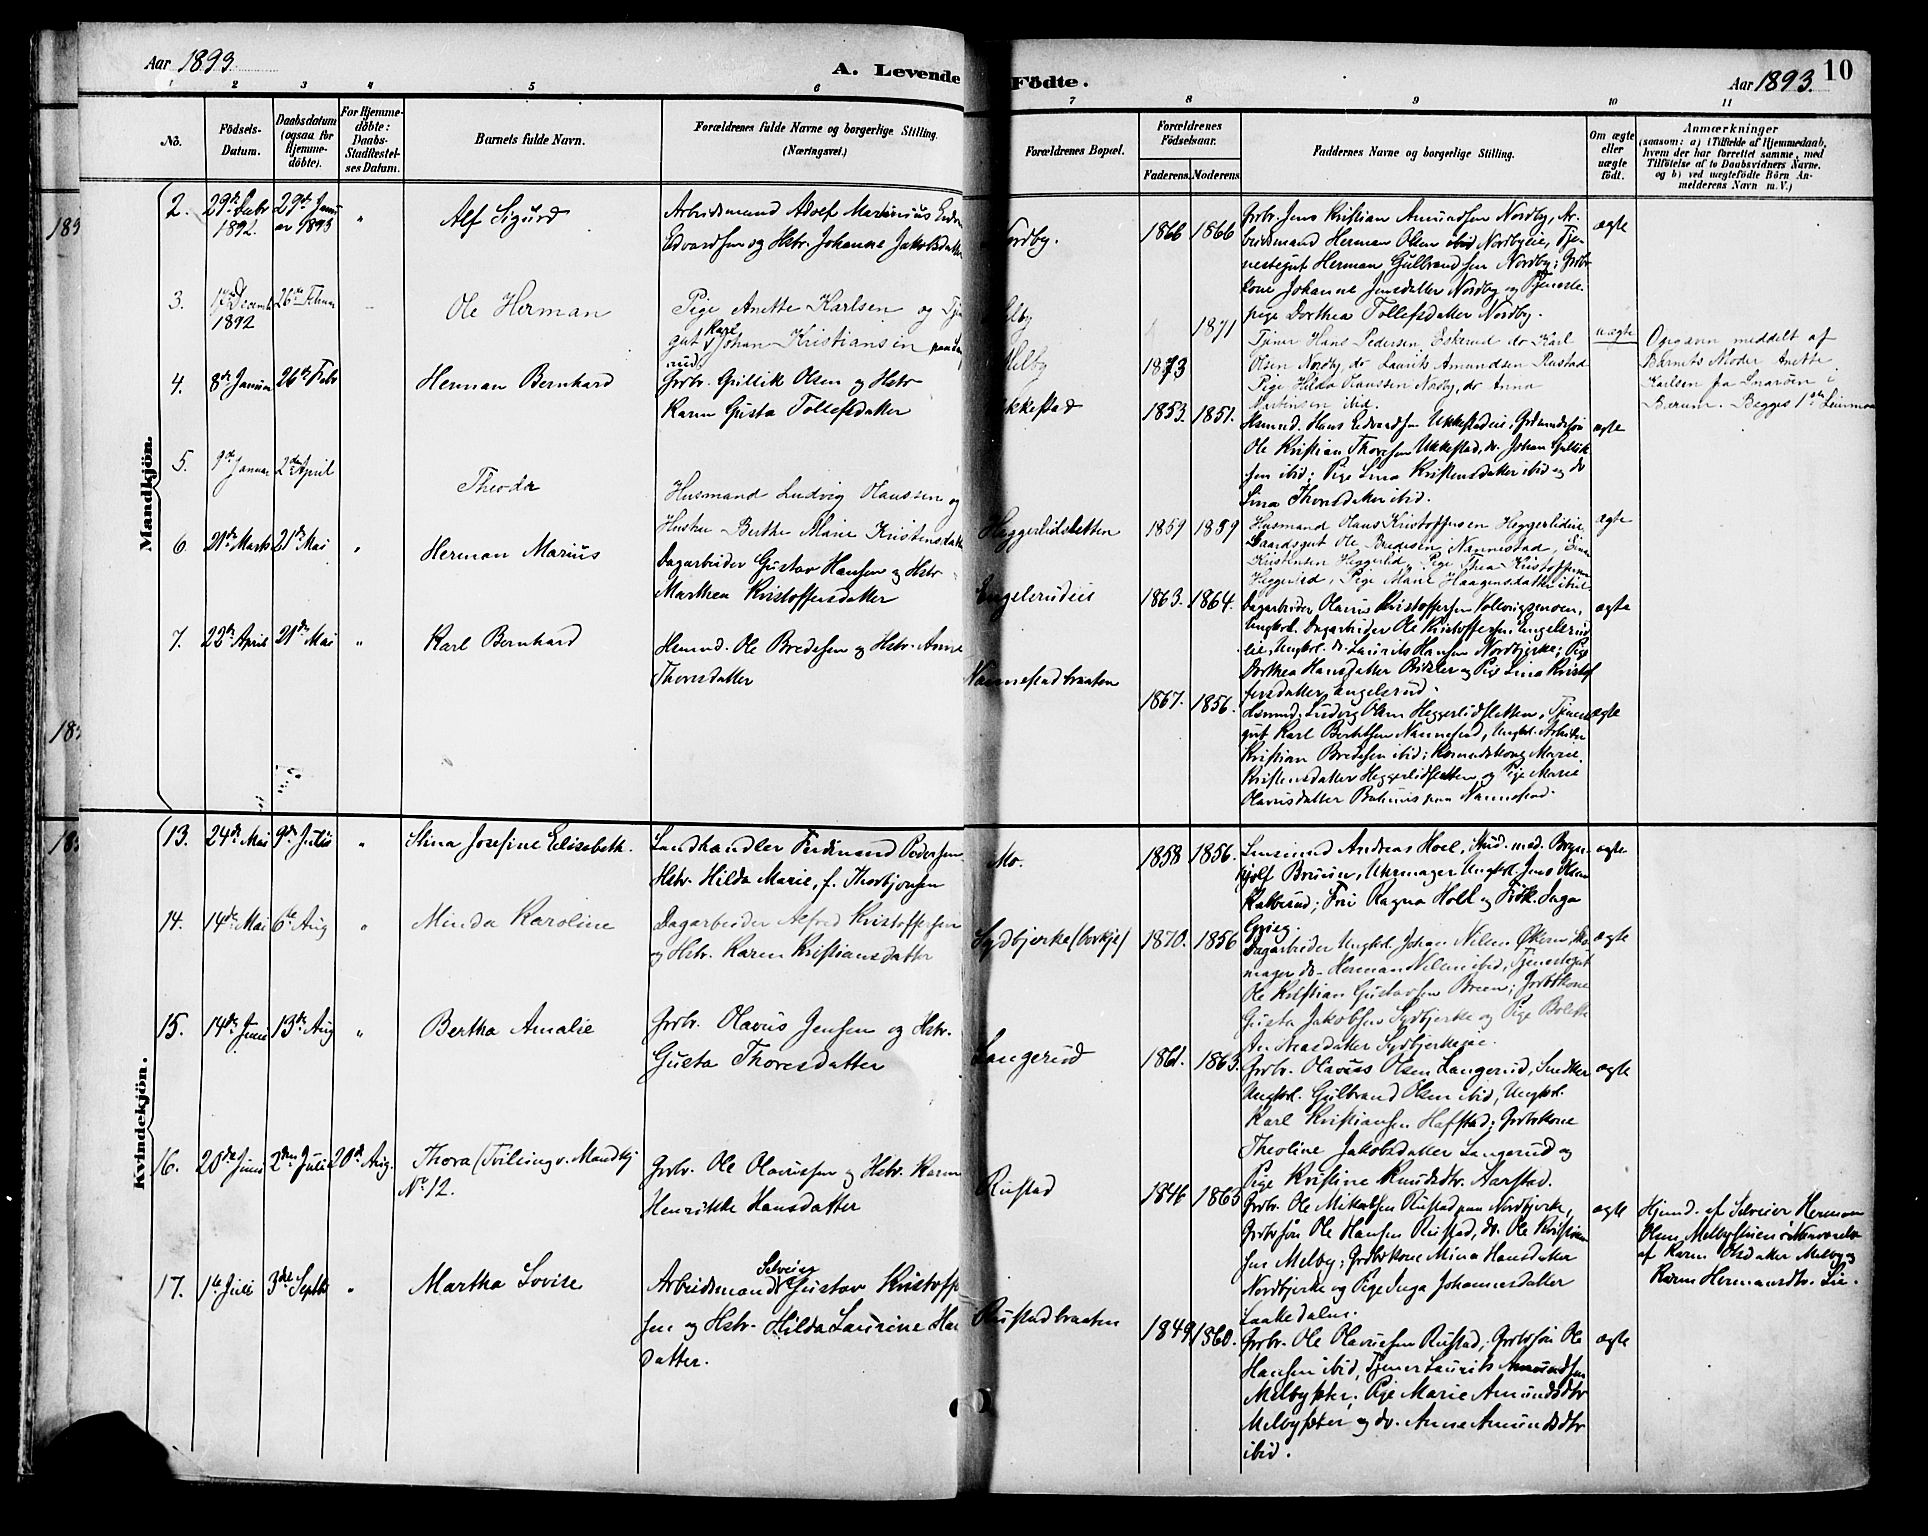 Aar 1893.
A. Levende Födte.
Aar 1893.
10
1 2 3 4 5 6 7 8 9 10 11
No.
Födsels-Datum.
Daabsdatum (ogsaa for Hjemme-döbte).
For Hjemme-döbte: Daabs-Stadfæstel-ses Datum.
Barnets fulde Navn.
Forældrenes fulde Navne og borgerlige Stilling.
(Næringsvei.)
Forældrenes Bopæl.
Forældrenes Födselsaar.
Faderens. Moderens.
Faddernes Navne og borgerlige Stilling.
Om ægte eller uægte födt.
Anmærkninger
(saasom: a) i Tilfælde af Hjemmedaab,
hvem der har forrettet samme, med
Tilföielse af to Daabsvidners Navne,
og b) ved uægtefödte Börn An-
melderens Navn m. V.)
Mandkjön.
2. 29de Decbr 1892. 29de Janu ar 1893 " Alf Sigurd
Arbeidsmand Adolf Marinius
Edvardsen og Hstr. Johanne Jakobsdatter
Nordby. 1866 1866
Grbr. Jens Kristian Amundsen Nordby, Ar-
beidsmand Herman Olsen Nordbyeie, Tje-
nestegut Herman Gulbrandsen Nordby; Grbr
kone Johanne Jensdatter Nordby og Tjeneste-
pige Dorthea Tollefsdatter Nordby.
ægte
3. 1892 26de Februar Ole Herman
Pige Anette Karlsen og
gut Karl Johan Kristiansen
Melby 1871
1873
Tjener Hans Pedersen Eskerud do Karl
Olsen Nordby, do Laurits Amundsen Rustad
Pige Hilda Claussen Nordby, do Anna
Martinsen ibid.
uægte
Opgaven meddelt af
Barnets Moder Anette
Karlsen fra Snaröen i
Bærum. Begges 1ste Leierm
4. 8de Januar 26de Febr Herman Bernhard
Grbr. Gullik Olsen og Hstr
Karen Gusta Tollefsdatter
Ukkestad 1853. 1851.
Hsmnd. Hans Edvardsen Ukkestadeie, Grdmndssön
Ole Kristian Thoresen Ukkestad, do. Johan Gullik-
sen ibid; Pige Lina Kristensdatter ibid og do
Lina Thorsdatter ibid.
ægte
5. 9de Januar 2den April Theodor
Husmand Ludvig Claussen og
Hustru Berthe Marie Kristensdatt
Heggerlidsletten 1859 1859
Husmand Claus Kristoffersen Heggerlideie,
Gaardsgut Ole Bredesen Nannestad,
Kristensen Heggerlid, Pige Thea Kristoffersen
Heggerlid, Pige Marie Haagensdatter ibid
ægte
6. 21de Marts 21de Mai " Herman Marius
Dagarbeider Gustav Hansen og Hstr
Marthea Kristoffersdatter
Engelsrudeie 1863. 1864.
Dagarbeider Olavus Kristoffersen
Ungkrl. Dagarbeider Ole Kristoffersen Engelsrud
eie, Ungkrl. do. Laurits Hansen Nordbjerke; Pige
Dorthea Hansdatter og Pige Lina Kristof
fersdatter Engelsrud.
ægte
7. 22de April 21de Mai " Karl Bernhard
Hsmnd. Ole Bredesen og Hstr. Anne
Thorsdatter
Nannestadbraaten 1867. 1856.
Hsmnd. Ludvig Olsen Heggerlidsletten, Tjeneste
gut Karl Berthelsen Nannestad, Ungkrl. Arbeider
Kristian Bredesen ibid; Husmandskone Marie
Kristensdatter Heggerlidsletten og Pige Marie
Olavusdatter paa Nannestad.
ægte
Kvindekjön.
13. 24de Mai 9de Juli " Stina Josefine Elisabeth.
Landhandler Ferdinand Pedersen
Hstr. Hilda Marie, f. Thorbjörnsen
Mo. 1858 1856.
Lensmand Andreas Hoel, Stud. med. Bryn-
julf Bruun, Uhrmager Ungkrl. Jens Olsen
Kalbrud; Fru Ragna Hoel og Frök. Inga
Grieg.
ægte
14. 14de Mai 6te Aug " Minda Karoline
Dagarbeider Alfred Kristoffersen
og Hstr. Karen Kristiansdatter
Sydbjerke 1870. 1856
Dagarbeider Ungkrl. Johan Nilsen Økern, Sko
mager do. Herman Nilsen ibid, Tjenestegut
Ole Kristian Gustavsen Breen; Grbrkone
Gusta Jakobsen Sydbjerke og Pige Bolette
Andreasdatter Sydbjerkeeie.
ægte
15. 14de Juni 13de Aug " Bertha Amalie
Grbr. Olavus Jensen og Hstr.
Gusta Thoresdatter
Langerud 1861. 1863.
Grbr. Olavus Olsen Langerud, Snedker
Ungkrl. Gulbrand Olsen ibid, Ungkrl.
Karl Kristiansen Hafstad; Grbrkone
Theoline Jakobsdatter Langerud og
Pige Kristine Knudsdtr. Aarstad.
ægte
16. 20de Juni 2den Juli 20de Aug. Thora (Tvilling v. Mandkj
No 12.
Grbr. Ole Olavussen og Hstr. Karen
Henrikke Hansdatter
Rustad 1846 1865
Grbr. Ole Mikkelsen Rustad paa Nordbjerke,
Grbrsön Ole Hansen Rustad, do. Ole Kristian
sen Melby; Grbrkone Mina Hansdatter
Nordbjerke og Pige Inga Johannesdatter
Laakedalen.
ægte
Hjemd. af Selveier Herman
Olsen Melbystuen i Nærværelse
af Karen Olsdatter Melby og
Karen Hermansdtr. Lie.
17. 1ste Juli 3die Septbr " Martha Lovise
Arbeidsmand Selveier Gustav Kristoffer
sen og Hstr. Hilda Laurine Han
datter.
Rustadbraaten 1849 1860.
Grbr. Ole Olavussen Rustad, Grbrsön Ole
Hansen ibid, Tjener Laurits Amundsen
Melbysæter; Pige Marie Amundsdtr
Melbysæter og do. Anna Amundsdtr
ibid.
ægte